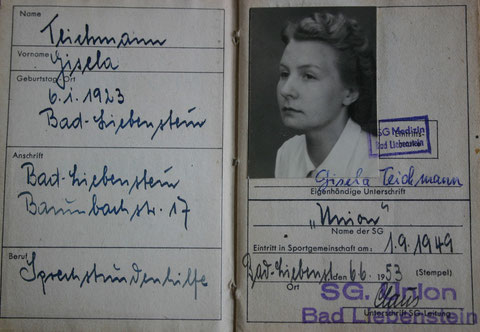 Name
Teichmann
Vorname
Gisela
Geburtstag-Ort
6.1.1923
Bad-Liebenstein
Anschrift
Bad-Liebenstein
Baumbachstr. 17
Beruf
Sprechstundenhilfe
SG Medizin
Eintritts-
Bad Liebenstein
Gisela Teichmann
Eigenhändige Unterschrift
„Union"
Name der SG
Eintritt in Sportgemeinschaft am: 1.9.1949
Bad-Liebenst. den 6.6. 1953 (Stempel)
Ort
SG. Union
Claus
Unterschrift SG-Leitung
Bad Liebenstein